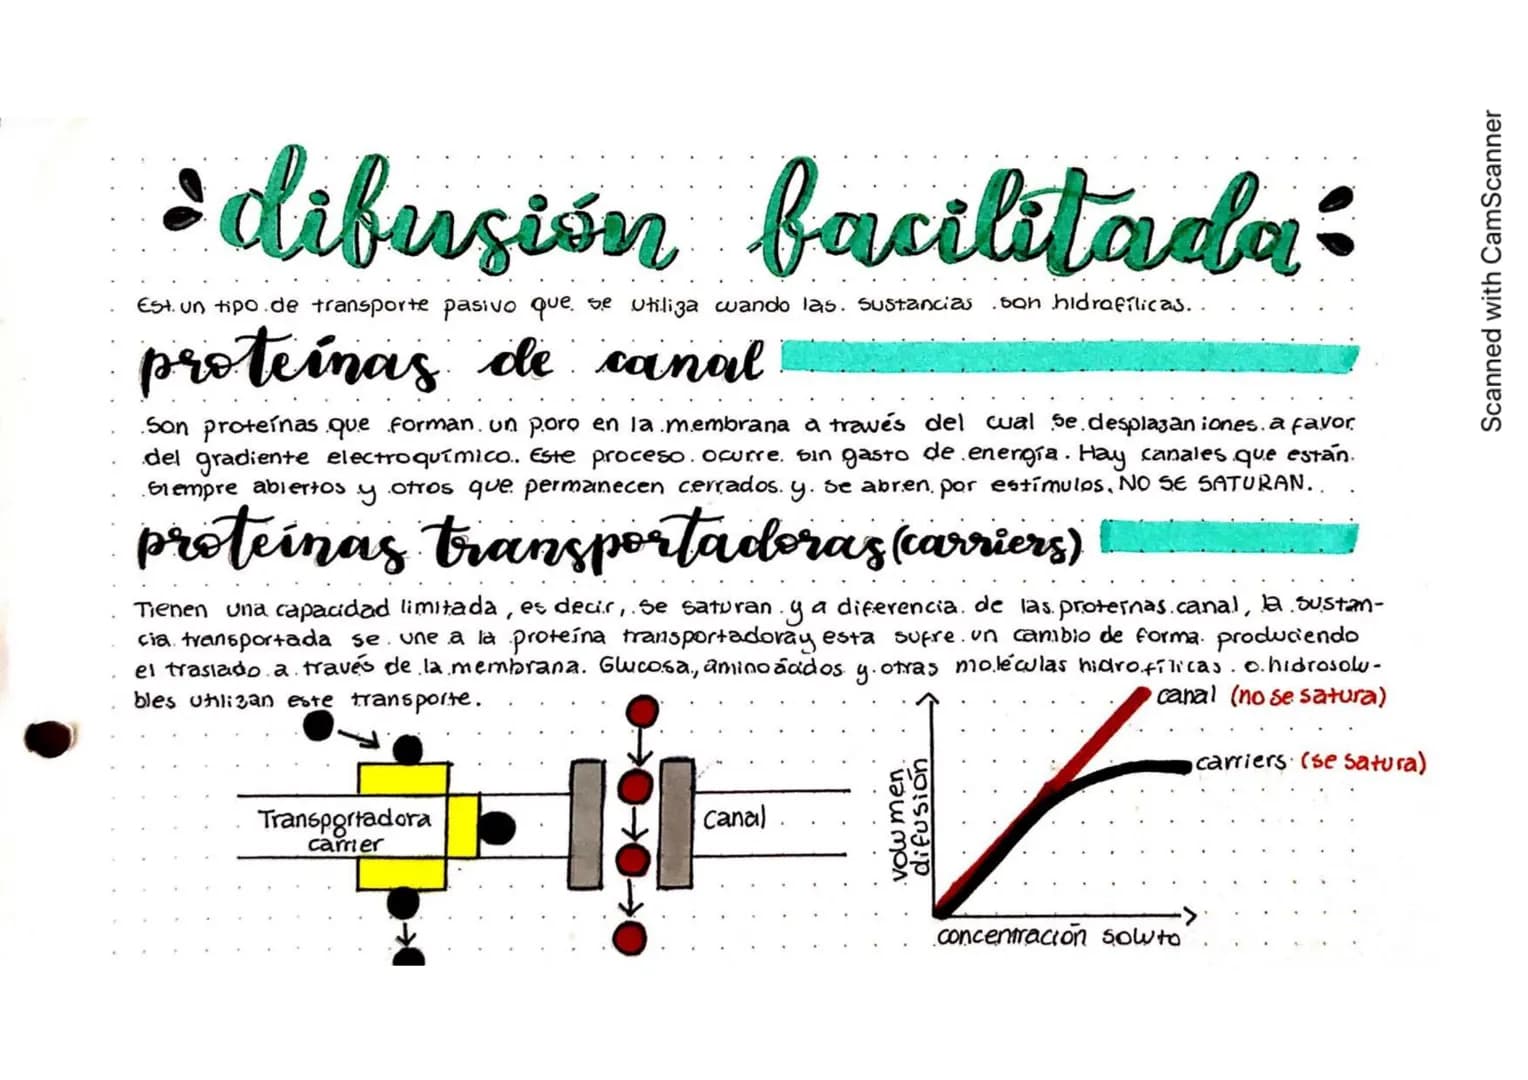 difusión facilitada
Est un tipo de transporte pasivo que se utiliza cuando las sustancias son hidrofílicas.
proteínas de canal
Son proteínas que forman un poro en la membrana a través del cual se desplazan iones a favor
del gradiente electroquímico. Este proceso ocurre sin gasto de energía. Hay canales que están
siempre abiertos y otros que permanecen cerrados y se abren por estímulos. NO SE SATURAN.
proteínas transportadoras (carriers)
Tienen una capacidad limitada, es decir, se saturan y a diferencia de las proteínas canal, la sustan-
cia transportada se une a la proteína transportadora y esta sufre un cambio de forma produciendo
el traslado a través de la membrana. Glucosa, aminoácidos y otras moléculas hidrofílicas o hidrosolu-
bles utilizan este transporte.
Transportadora
carrier
canal
volumen
difusión
concentración soluto
canal (no se satura)
carriers (se satura)
Scanned with CamScanner